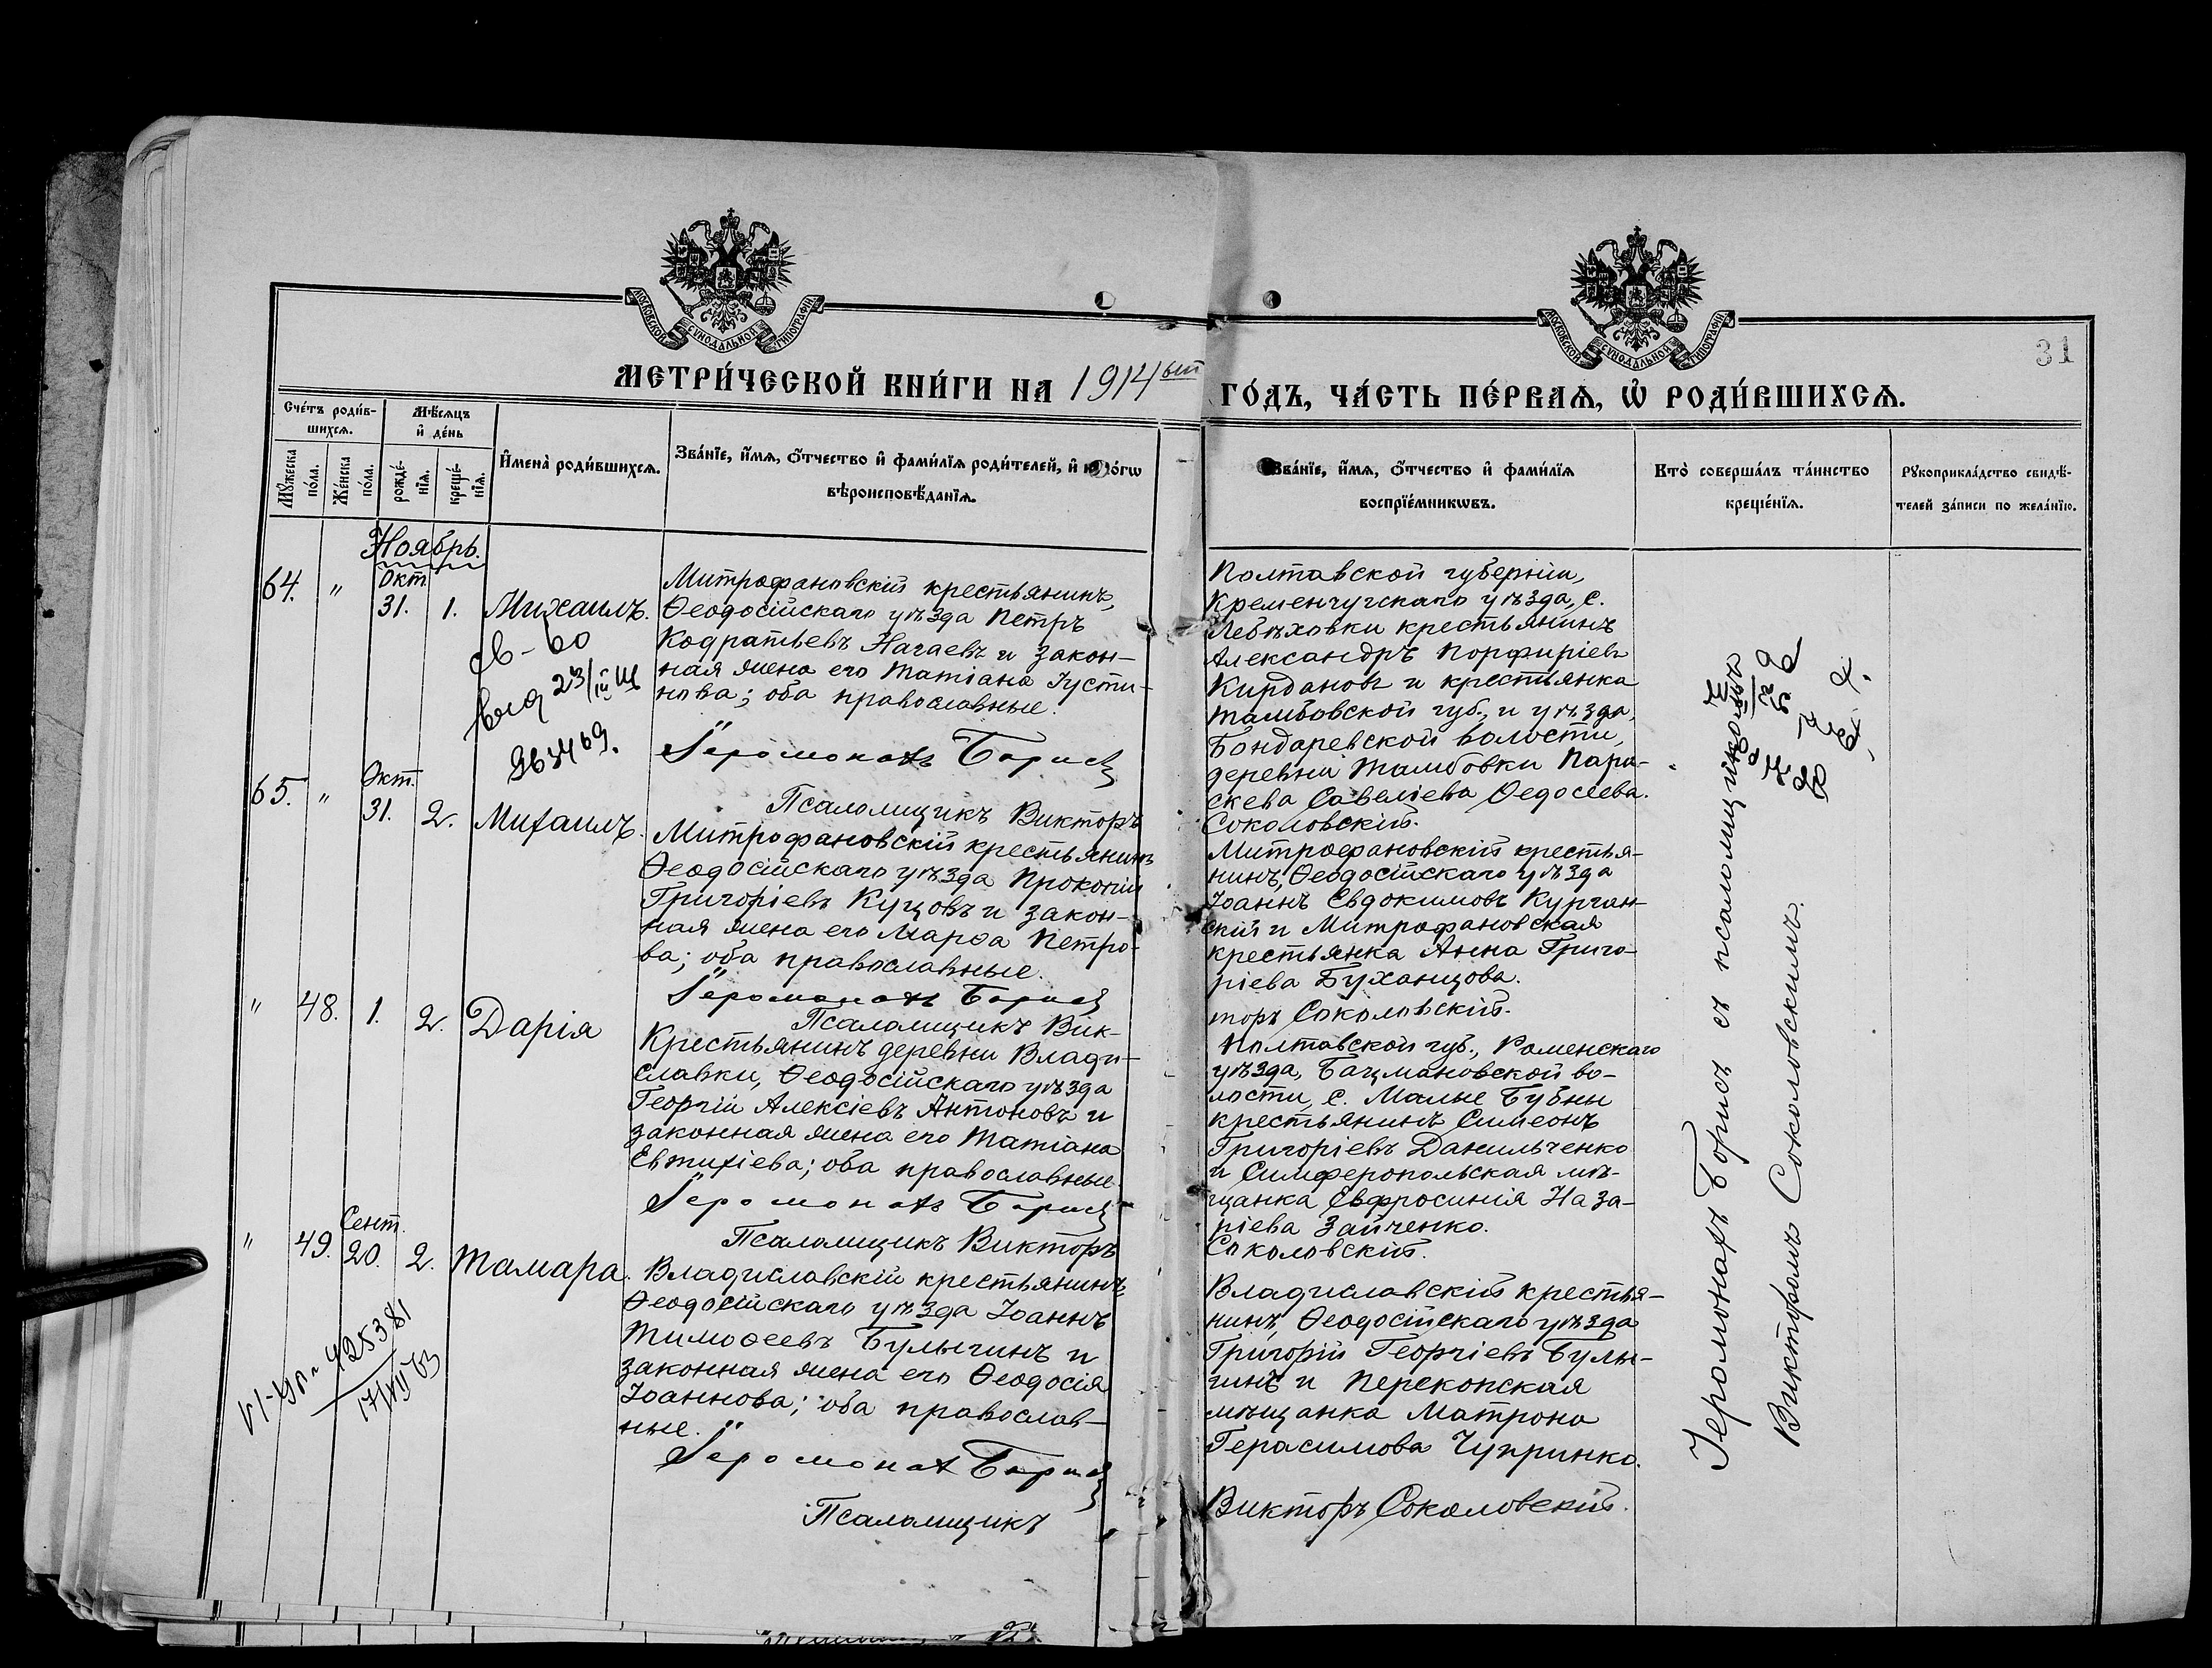 МОСКОВСКОЙ СѴНОДАЛЬНОЙ ТИПОГРАФІИ
МОСКОВСКОЙ СѴНОДАЛЬНОЙ ТИПОГРАФІИ
31
МЕТРИ́ЧЕСКОЙ КНИ́ГИ НА 1914ый
ГО́ДЪ, ЧА́СТЬ ПЕ́РВАѦ, Ѡ҆ РОДИ́ВШИХСѦ.
Сче́тъ роди́в-
шихсѧ.
Мꙋ́жеска
по́ла.
Же́нска
по́ла.
Мѣ́сѧцъ
и҆ де́нь
рожде́-
нїѧ.
креще́-
нїѧ.
И҆мена̀ роди́вшихсѧ.
Зва́нїе, и҆́мѧ, ѻ҆́тчество и҆ фами́лїѧ роди́телей, и҆
вѣроисповѣ́данїѧ.
Зва́нїе, и҆́мѧ, ѻ҆́тчество и҆ фами́лїѧ
воспрїе́мникѡвъ.
Кто̀ соверша́лъ та́инство
креще́нїѧ.
Рꙋкоприкла́дство свидѣ́-
телей за́писи по жела́нїю.
Ноябрь.
64. "
Окт.
31. 1. Михаилъ.
Митрофановскій крестьянинъ,
Ѳеодосійскаго уѣзда Петръ
Кодратьевъ Начаевъ и закон-
ная жена его Татіана Іусти-
нова; оба православные.
Іеромонахъ Борисъ
Псаломщикъ Викторъ
Полтавской губерніи,
Кременчугскаго уѣзда, с.
Лебѣховки крестьянинъ
Александръ Порфиріевъ
Кирдановъ и крестьянка
Тамбовской губ., и уѣзда,
Бондаревской волости,
деревни Тамбовки Пара-
скева Савеліева Ѳедосеева.
Соколовскій.
65. "
Окт.
31. 2. Михаилъ.
Митрофановскій крестьянинъ
Ѳеодосійскаго уѣзда Прокопій
Григоріевъ Куцовъ и закон-
ная жена его Марѳа Петро-
ва; оба православные.
Іеромонахъ Борисъ
Псаломщикъ Вик-
Митрофановскій крестья-
нинъ, Ѳеодосійскаго уѣзда
Іоаннъ Евдокимовъ Курган-
скій и Митрофановская
крестьянка Анна Григо-
ріева Буханцова.
торъ Соколовскій.
" 48. 1. 2. Дарія
Крестьянинъ деревни Влади-
славки, Ѳеодосійскаго уѣзда
Георгій Алексіевъ Антоновъ и
законная жена его Татіана
Евтихіева; оба православные.
Іеромонахъ Борисъ
Псаломщикъ Викторъ
Полтавской губ., Роменскаго
уѣзда, Бацмановской во-
лости, с. Малые Бубны
крестьянинъ Симеонъ
Григоріевъ Данильченко
и Симферопольская мѣ-
щанка Евфросинія Наза-
ріева Зайченко.
Соколовскій.
" 49.
Сент.
20. 2. Тамара.
Владиславскій крестьянинъ,
Ѳеодосійскаго уѣзда Іоаннъ
Тимоѳеевъ Булыгинъ и
законная жена его Ѳеодосія
Іоаннова; оба православ-
ные.
Іеромонах Борисъ
Псаломщикъ
Владиславскій крестья-
нинъ, Ѳеодосійскаго уѣзда
Григорій Георгіевъ Булы-
гинъ и Перекопская
мѣщанка Матрона
Герасимова Чупринко.
Викторъ Соколовскій.
Іеромонахъ Борисъ съ псаломщикомъ
Викторомъ Соколовскимъ.
425381